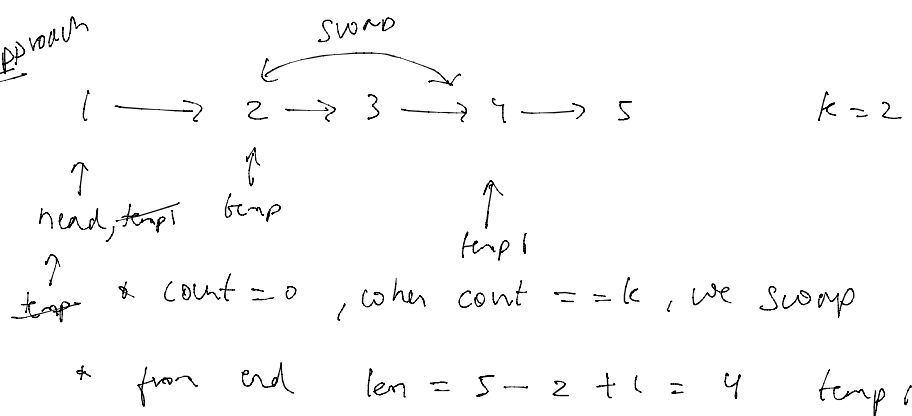 Approach
swap
1 → 2 → 3 → 4 → 5 k = 2
head, temp1 temp
temp1
temp * count = 0, when cont == k, we swap
* from end len = 5 - 2 + 1 = 4 temp1